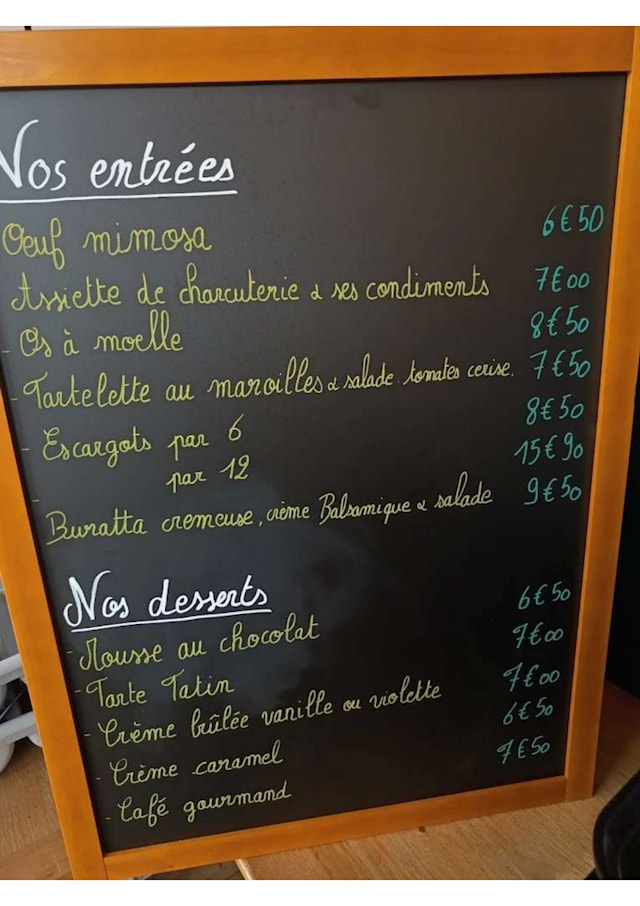 Nos entrées
Œuf mimosa 6€50
Assiette de charcuterie & ses condiments 7€00
- Os à moelle 8€50
- Tartelette au maroilles & salade tomates cerise. 7€50
- Escargots par 6 8€50
- par 12 15€90
Buratta cremeuse, crème Balsamique & salade 9€50
Nos desserts
- Mousse au chocolat 6€50
- Tarte Tatin 7€00
- Crème brûlée vanille ou violette 7€00
- Crème caramel 6€50
- Café gourmand 7€50